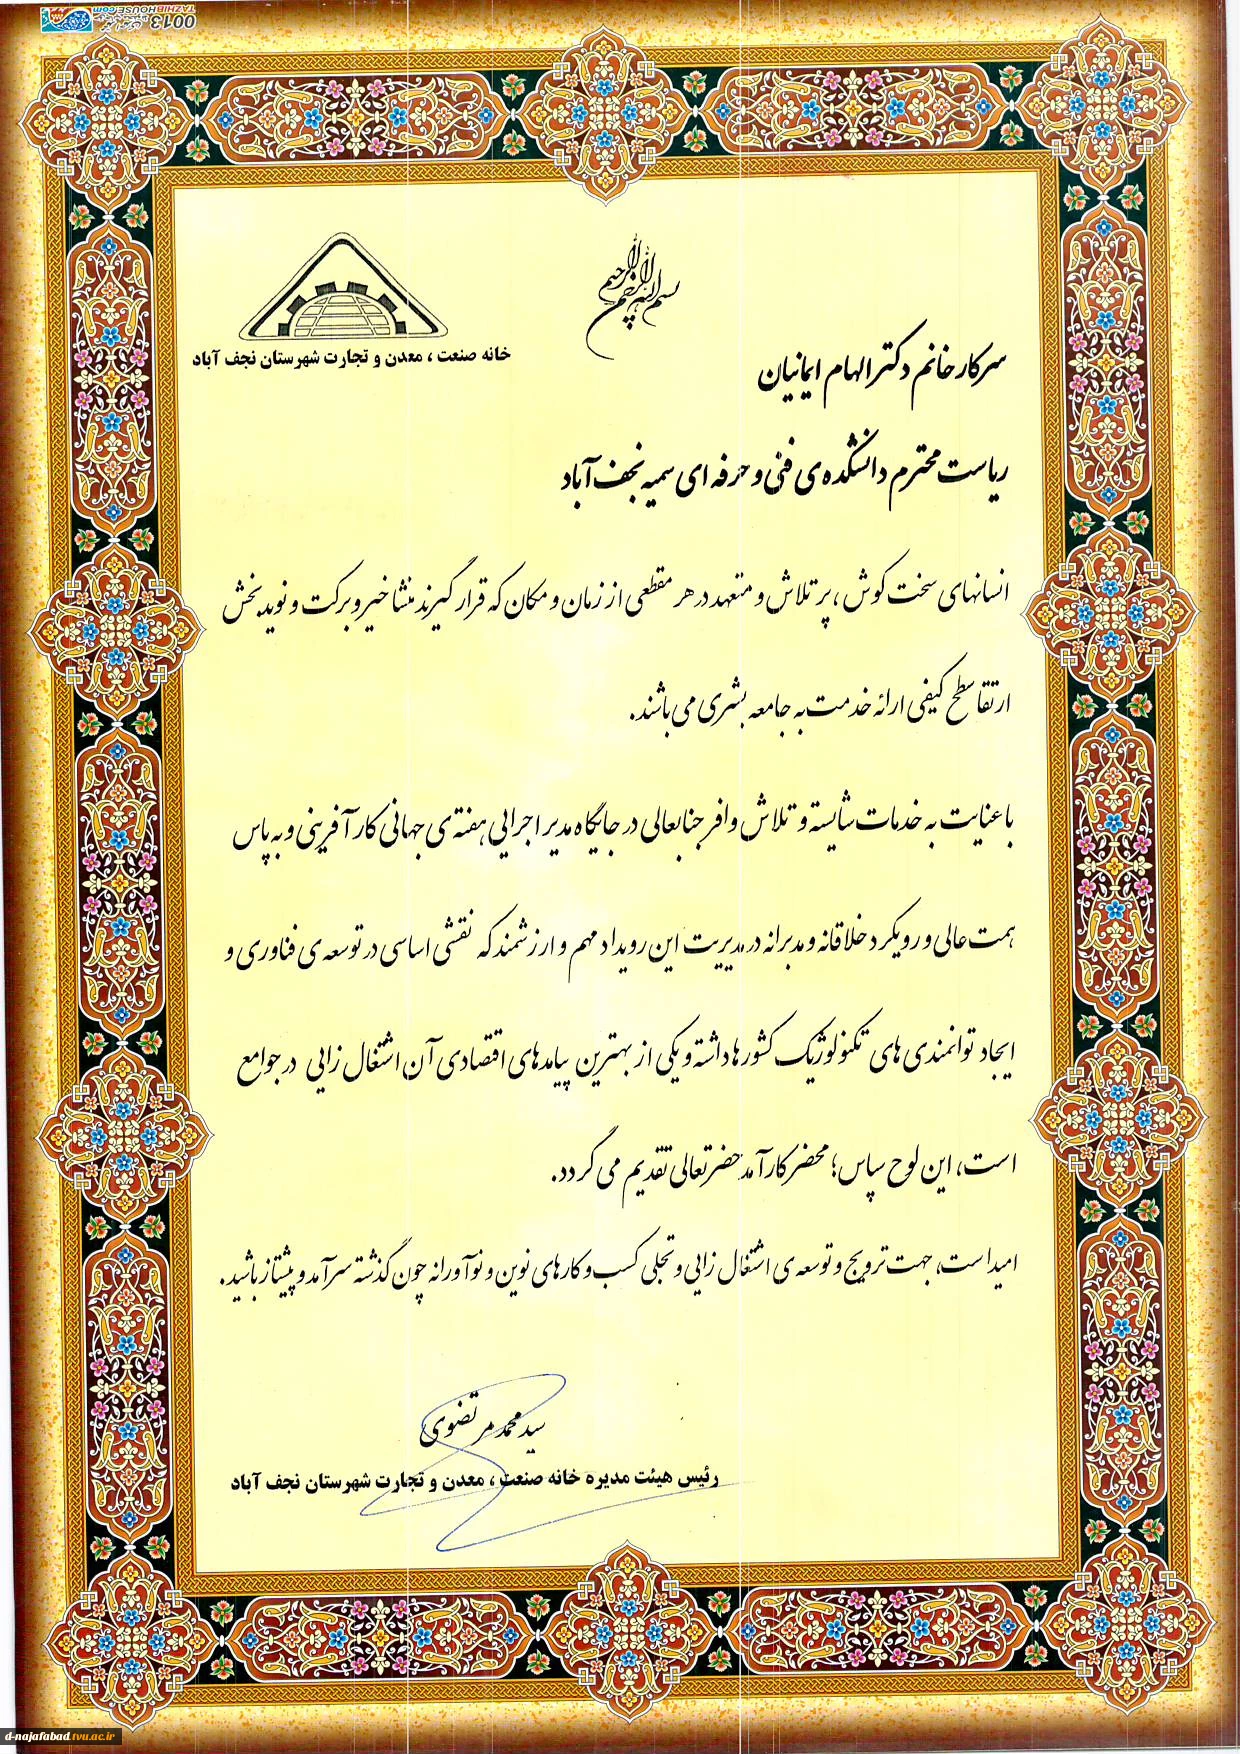 TAZHIBHOUSE.com 0013
بسم الله الرحمن الرحیم
خانه صنعت ، معدن و تجارت شهرستان نجف آباد
سرکار خانم دکتر الهام ایمانیان
ریاست محترم دانشکده ی فنی و حرفه ای سمیه نجف آباد
انسانهای سخت کوش ، پر تلاش و متعهد در هر مقطعی از زمان و مکان که قرار گیرند منشا خیر و برکت و نوید بخش
ارتقا سطح کیفی ارائه خدمت به جامعه بشری می باشند.
با عنایت به خدمات شایسته و تلاش وافر جنابعالی در جایگاه مدیر اجرایی هفته ی جهانی کارآفرینی و به پاس
همت عالی و رویکرد خلاقانه و مدبرانه در مدیریت این رویداد مهم و ارزشمند که نقشی اساسی در توسعه ی فناوری و
ایجاد توانمندی های تکنولوژیک کشورها داشته و یکی از بهترین پیامدهای اقتصادی آن اشتغال زایی در جوامع
است، این لوح سپاس؛ محضر کارآمد حضرتعالی تقدیم می گردد.
امید است، جهت ترویج و توسعه ی اشتغال زایی و تجلی کسب و کارهای نوین و نوآورانه چون گذشته سرآمد و پیشتاز باشید.
سید محمد مرتضوی
رئیس هیئت مدیره خانه صنعت ، معدن و تجارت شهرستان نجف آباد
d-najafabad.tvu.ac.ir